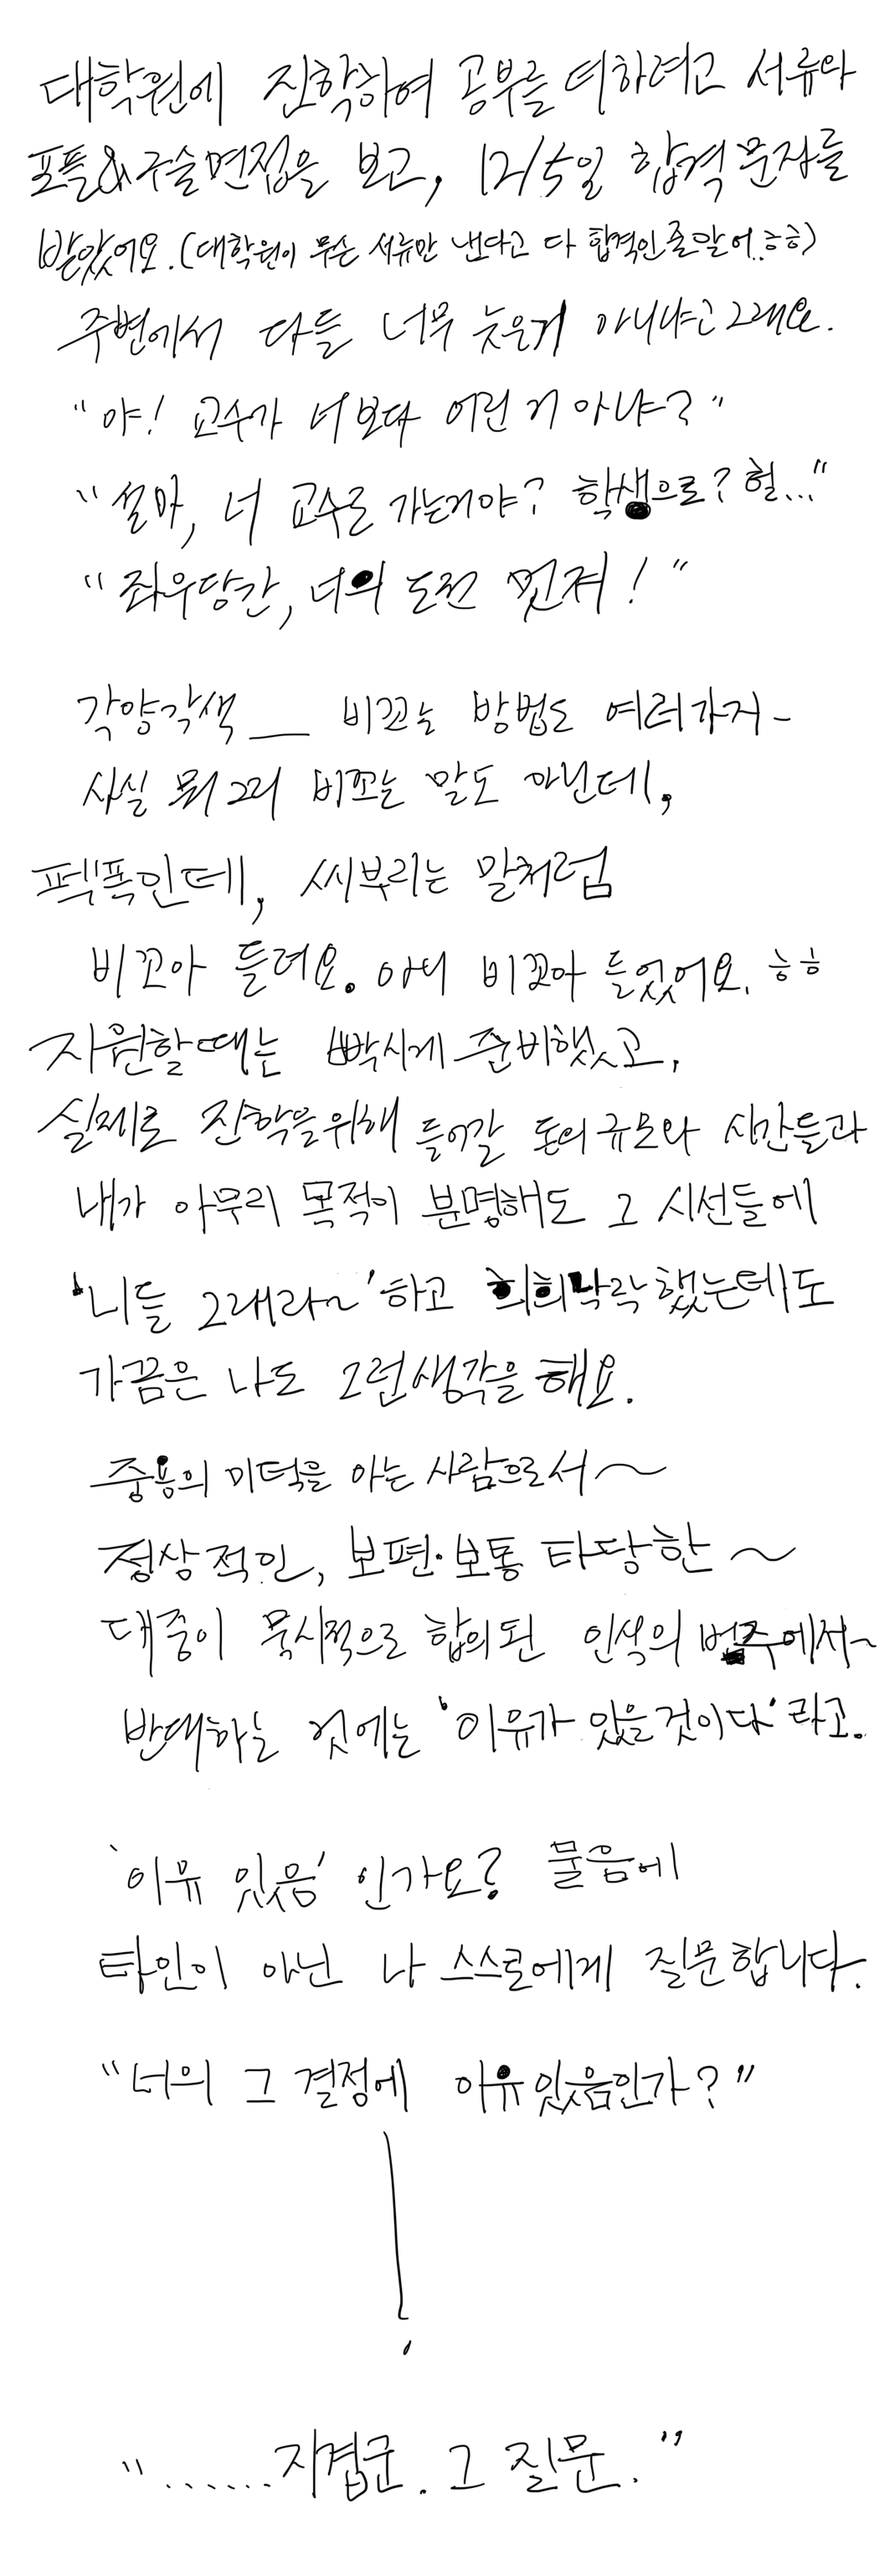 대학원에 진학하여 공부를 더하려고 서류와
포폴&구술면접을 보고, 12/5일 합격 문자를
받았어요.(대학원이 무슨 서류만 낸다고 다 합격인줄알어..ㅎㅎ)
주변에서 다들 너무 늦은거 아니냐고 그래요.
"야! 교수가 너보다 어린거 아냐?"
"설마, 너 교수로 가는거야? 학생으로? 헐..."
"좌우당간, 너의 도전 멋져!"
각양각색__ 비꼬는 방법도 여러가지-
사실 뭐 그리 비꼬는 말도 아닌데,
팩폭인데, 씨부리는 말처럼
비꼬아 들려요. 아니 비꼬아 들었어요. ㅎㅎ
지원할때는 빡시게 준비했고,
실제로 진학을위해 들어갈 돈의 규모와 시간들과
내가 아무리 목적이 분명해도 그 시선들에
'니들 그래라~'하고 희희낙락했는데도
가끔은 나도 그런생각을 해요.
중용의 미덕을 아는 사람으로서~
정상적인, 보편·보통 타당한~
대중이 묵시적으로 합의된 인식의 범주에서~
반대하는 것에는 '이유가 있을것이다'라고.
'이유 있음'인가요? 물음에
타인이 아닌 나 스스로에게 질문합니다.
"너의 그 결정에 이유있음인가?"
"......지겹군. 그 질문."